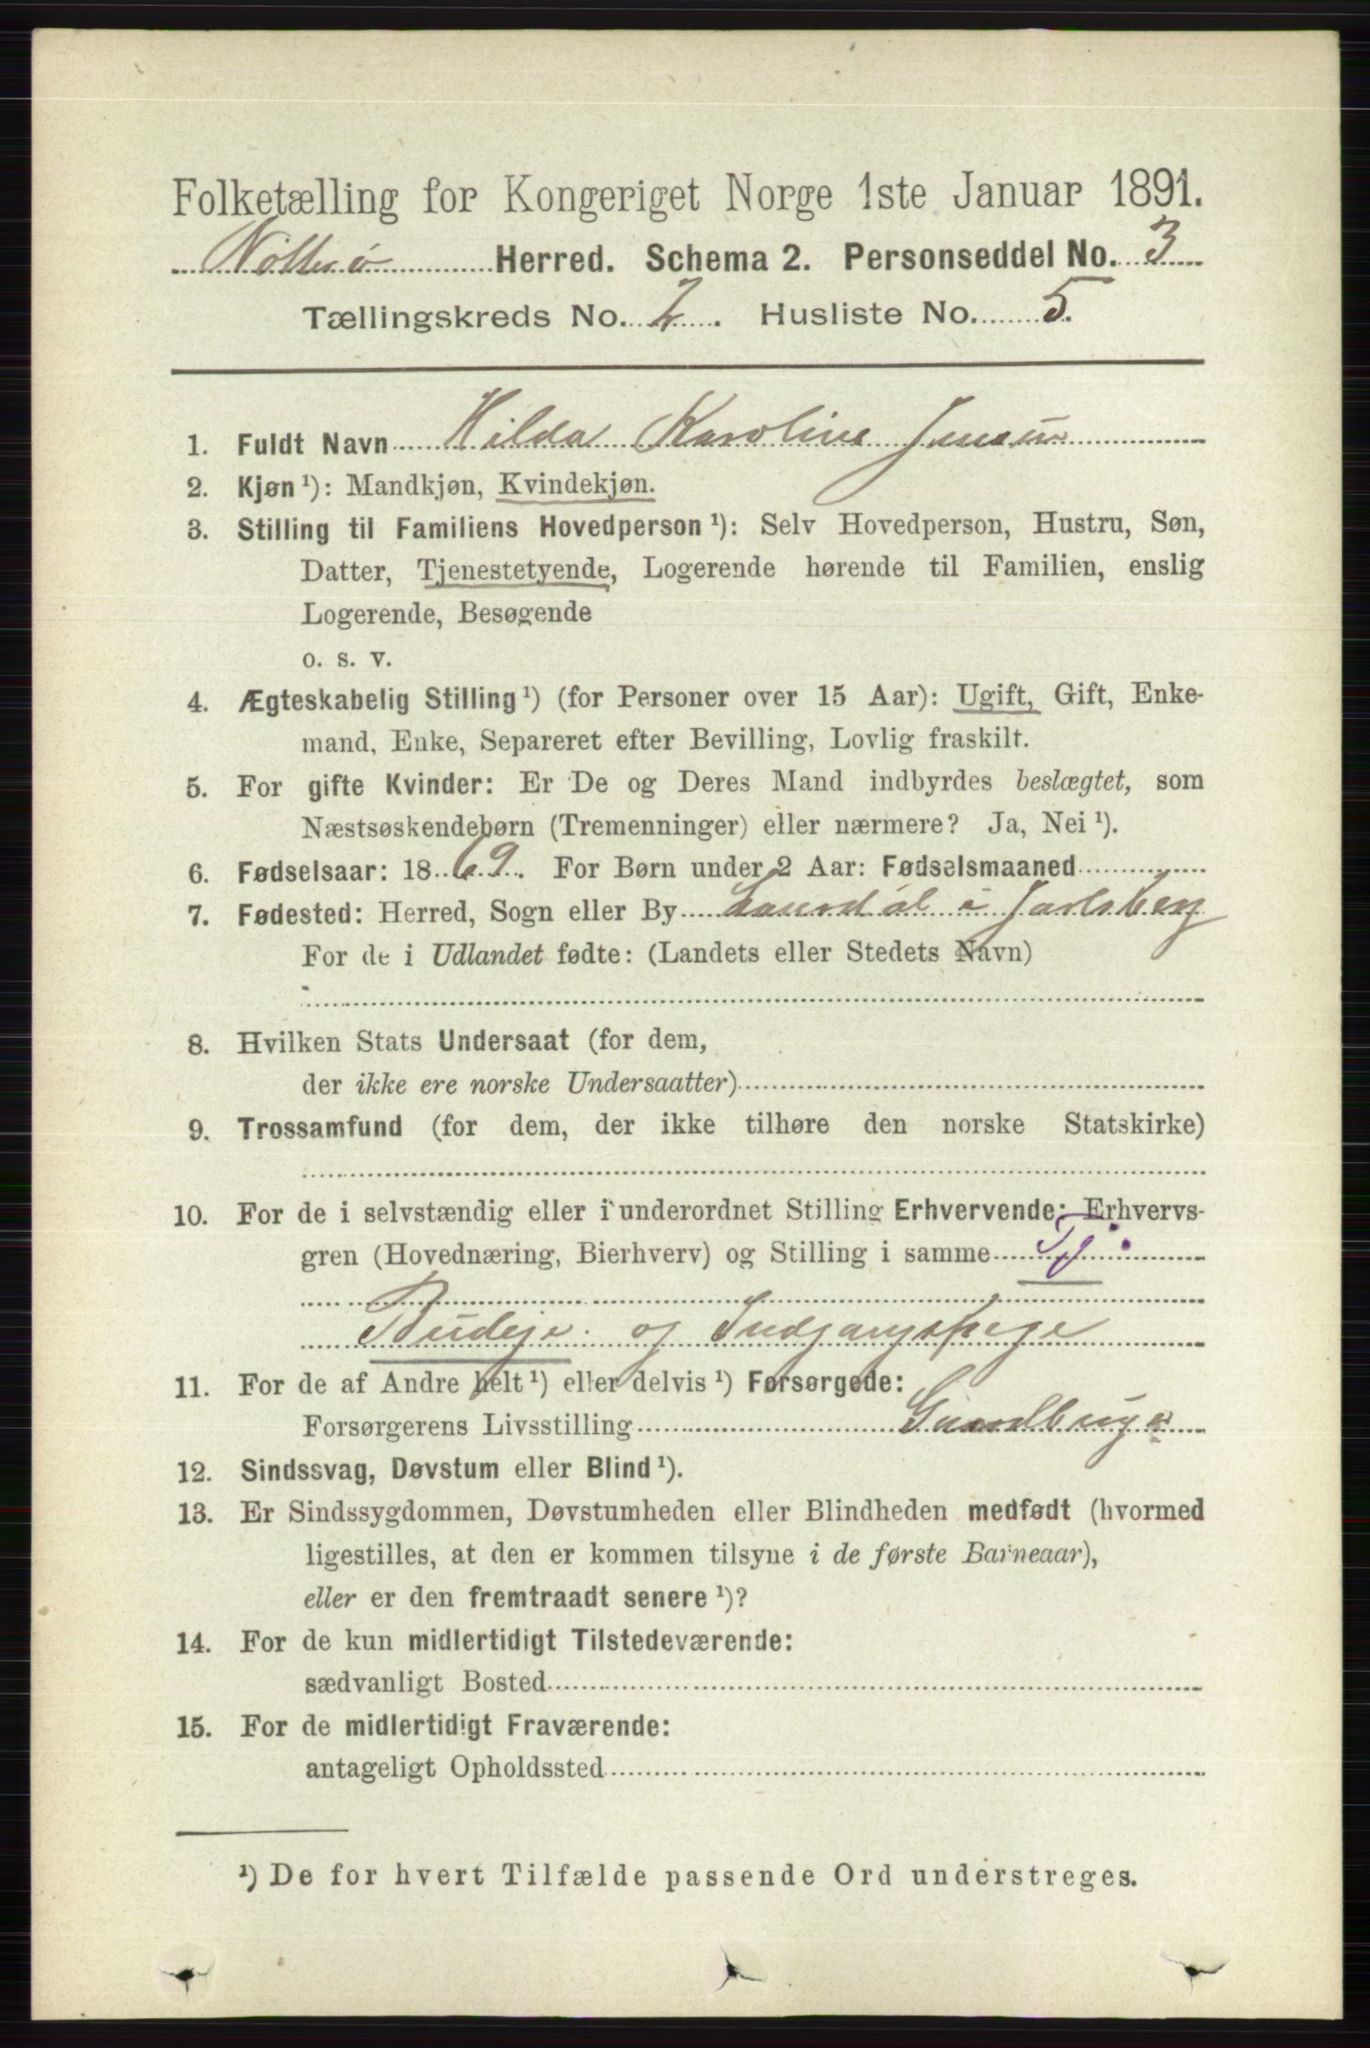 Folketælling for Kongeriget Norge 1ste Januar 1891.
Nøtterø Herred. Schema 2. Personseddel No. 3
Tællingskreds No. 2. Husliste No. 5.
1. Fuldt Navn Hilda Karoline Jensen
2. Kjøn ¹): Mandkjøn, Kvindekjøn.
3. Stilling til Familiens Hovedperson ¹): Selv Hovedperson, Hustru, Søn,
Datter, Tjenestetyende, Logerende hørende til Familien, enslig
Logerende, Besøgende
o. s. v.
4. Ægteskabelig Stilling ¹) (for Personer over 15 Aar): Ugift, Gift, Enke-
mand, Enke, Separeret efter Bevilling, Lovlig fraskilt.
5. For gifte Kvinder: Er De og Deres Mand indbyrdes beslægtet, som
Næstsøskendebørn (Tremenninger) eller nærmere? Ja, Nei ¹).
6. Fødselsaar: 1869. For Børn under 2 Aar: Fødselsmaaned
7. Fødested: Herred, Sogn eller By Laurdal i Jarlsberg
For de i Udlandet fødte: (Landets eller Stedets Navn)
8. Hvilken Stats Undersaat (for dem,
der ikke ere norske Undersaatter)
9. Trossamfund (for dem, der ikke tilhøre den norske Statskirke)
10. For de i selvstændig eller i underordnet Stilling Erhvervende: Erhvervs-
gren (Hovednæring, Bierhverv) og Stilling i samme Tj.
Budeje og Indgangspige
11. For de af Andre helt ¹) eller delvis ¹) Forsørgede:
Forsørgerens Livsstilling
12. Sindssvag, Døvstum eller Blind ¹).
13. Er Sindssygdommen, Døvstumheden eller Blindheden medfødt (hvormed
ligestilles, at den er kommen tilsyne i de første Barneaar),
eller er den fremtraadt senere ¹)?
14. For de kun midlertidigt Tilstedeværende:
sædvanligt Bosted
15. For de midlertidigt Fraværende:
antageligt Opholdssted
¹) De for hvert Tilfælde passende Ord understreges.